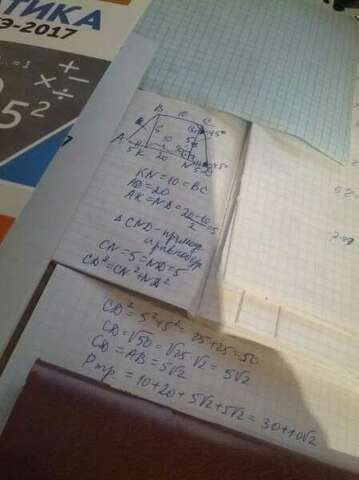 АТИКА
Э-2017
5²
B C
A K N D
10
20
5
45°
KN = 10 = BC
AD = 20
AK = ND = 20-10/2 = 5
△ CND - прямоуг
равнобедр
CN = 5 = ND = 5
CD² = CN² + ND²
CD² = 5² + 5² = 25 + 25 = 50
CD = √50 = √25 √2 = 5√2
CD = AB = 5√2
Pтр. = 10 + 20 + 5√2 + 5√2 = 30 + 10√2